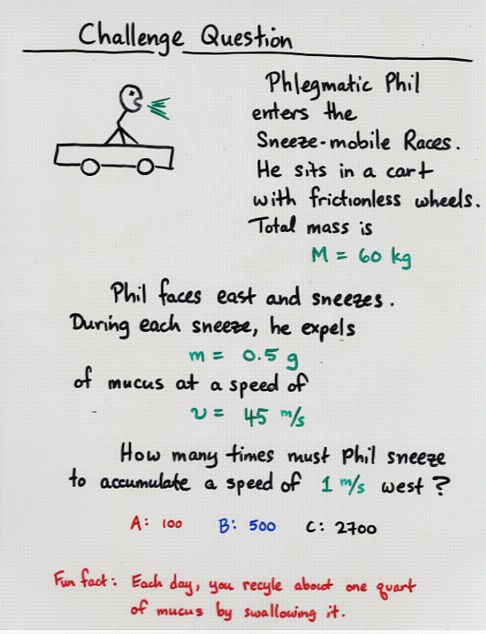 Challenge Question
Phlegmatic Phil
enters the
Sneeze-mobile Races.
He sits in a cart
with frictionless wheels.
Total mass is
M = 60 kg
Phil faces east and sneezes.
During each sneeze, he expels
m = 0.5 g
of mucus at a speed of
v = 45 m/s
How many times must Phil sneeze
to accumulate a speed of 1 m/s west?
A: 100 B: 500 C: 2700
Fun fact: Each day, you recyle about one quart
of mucus by swallowing it.